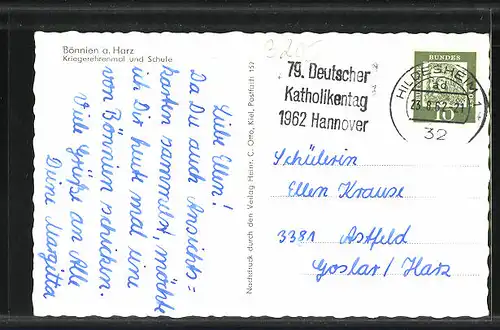 Bönnien a. Harz
Kriegerehrenmal und Schule
Liebe Ellen!
Da Du auch Ansichts=
karten sammelst, möchte
ich Dir heute mal eine
von Bönnien schicken.
Viele Grüße an Alle
Deine Margitta
Nachdruck durch den Verlag Heinr. C. Otto, Kiel, Postfach 152
79. Deutscher
Katholikentag
1962 Hannover
BUNDES
10
HILDESHEIM 1
32
Schülerin
Ellen Krause
3381 Astfeld
Goslar/Harz